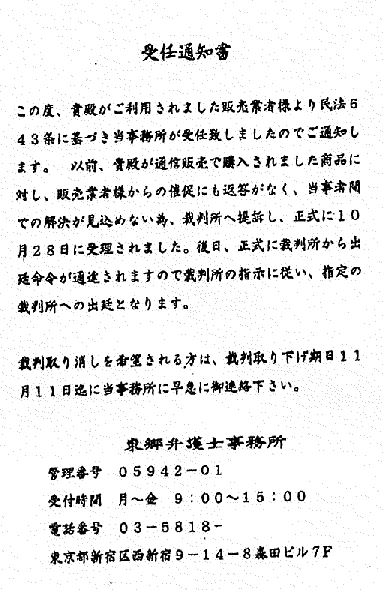 受任通知書
この度、貴殿がご利用されました販売業者様より民法6
43条に基づき当事務所が受任致しましたのでご通知し
ます。 以前、貴殿が通信販売で購入されました商品に
対し、販売業者様からの催促にも返答がなく、当事者間
での解決が見込めない為、裁判所へ提訴し、正式に10
月28日に受理されました。後日、正式に裁判所から出
廷命令が通達されますので裁判所の指示に従い、指定の
裁判所への出廷となります。
裁判取り消しを希望される方は、裁判取り下げ期日11
月11日迄に当事務所に早急に御連絡下さい。
東郷弁護士事務所
管理番号 05942-01
受付時間 月~金 9:00~15:00
電話番号 03-5818-
東京都新宿区西新宿9-14-8森田ビル7F